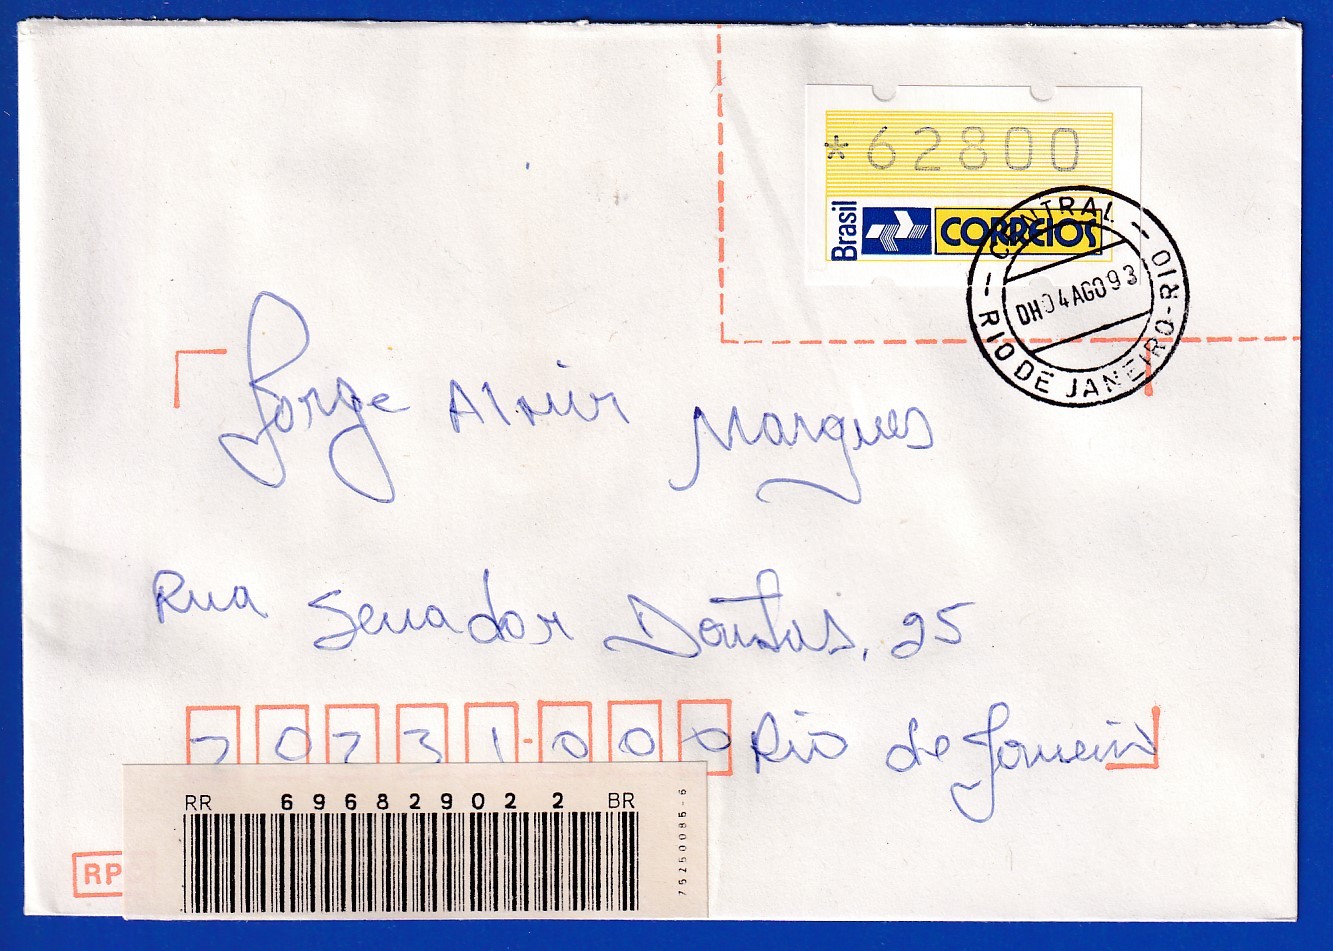 *62800
Brasil CORREIOS
CENTRAL - RIO
DH 04 AGO 93
RIO DE JANEIRO - RIO
Jorge Alvir Marques
Rua Senador Dantas, 25
20231-000 Rio de Janeiro
RR 69682902 2 BR
75250085-6
RP